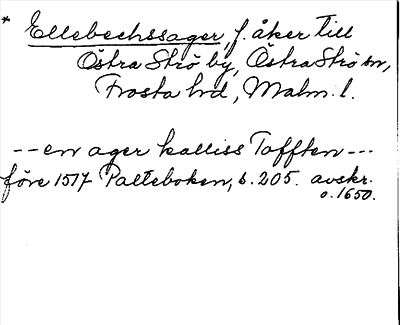 * Ellebechssager, f. åker till
Östra Strö by, Östra Strö sn,
Frosta hd, Malm. l.
-- en ager kalliss Tofften ---
före 1517 Palteboken, s. 205. avskr.
o. 1650.